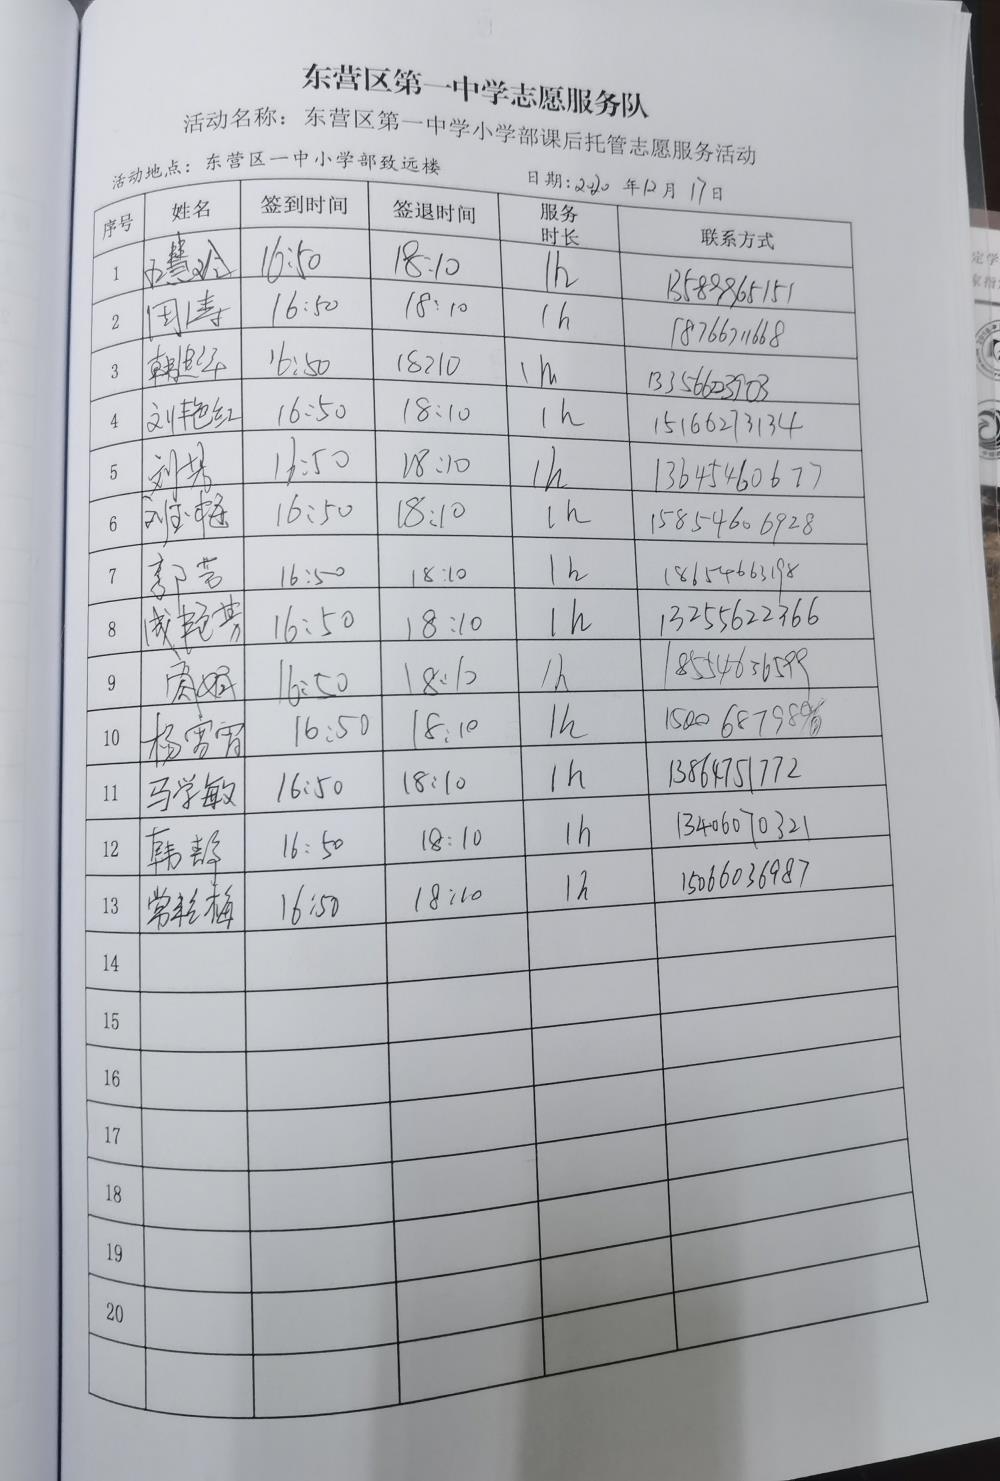 东营区第一中学志愿服务队
活动名称：东营区第一中学小学部课后托管志愿服务活动
活动地点：东营区一中小学部致远楼 日期:2020 年12月 17日
序号 姓名 签到时间 签退时间 服务时长 联系方式
1 16:50 18:10 1h 13589865151
2 周涛 16:50 18:10 1h 18766711668
3 16:50 18:10 1h 13356623703
4 刘艳红 16:50 18:10 1h 15166273134
5 刘芳 16:50 18:10 1h 13645460677
6 16:50 18:10 1h 15854606928
7 郭营 16:50 18:10 1h 18654663198
8 成艳芳 16:50 18:10 1h 13255622366
9 16:50 18:10 1h 18554636599
10 杨雪雷 16:50 18:10 1h
11 马学敏 16:50 18:10 1h 13864751772
12 韩静 16:50 18:10 1h 13406070321
13 16:50 18:10 1h 15066036987
14
15
16
17
18
19
20
定学
家指